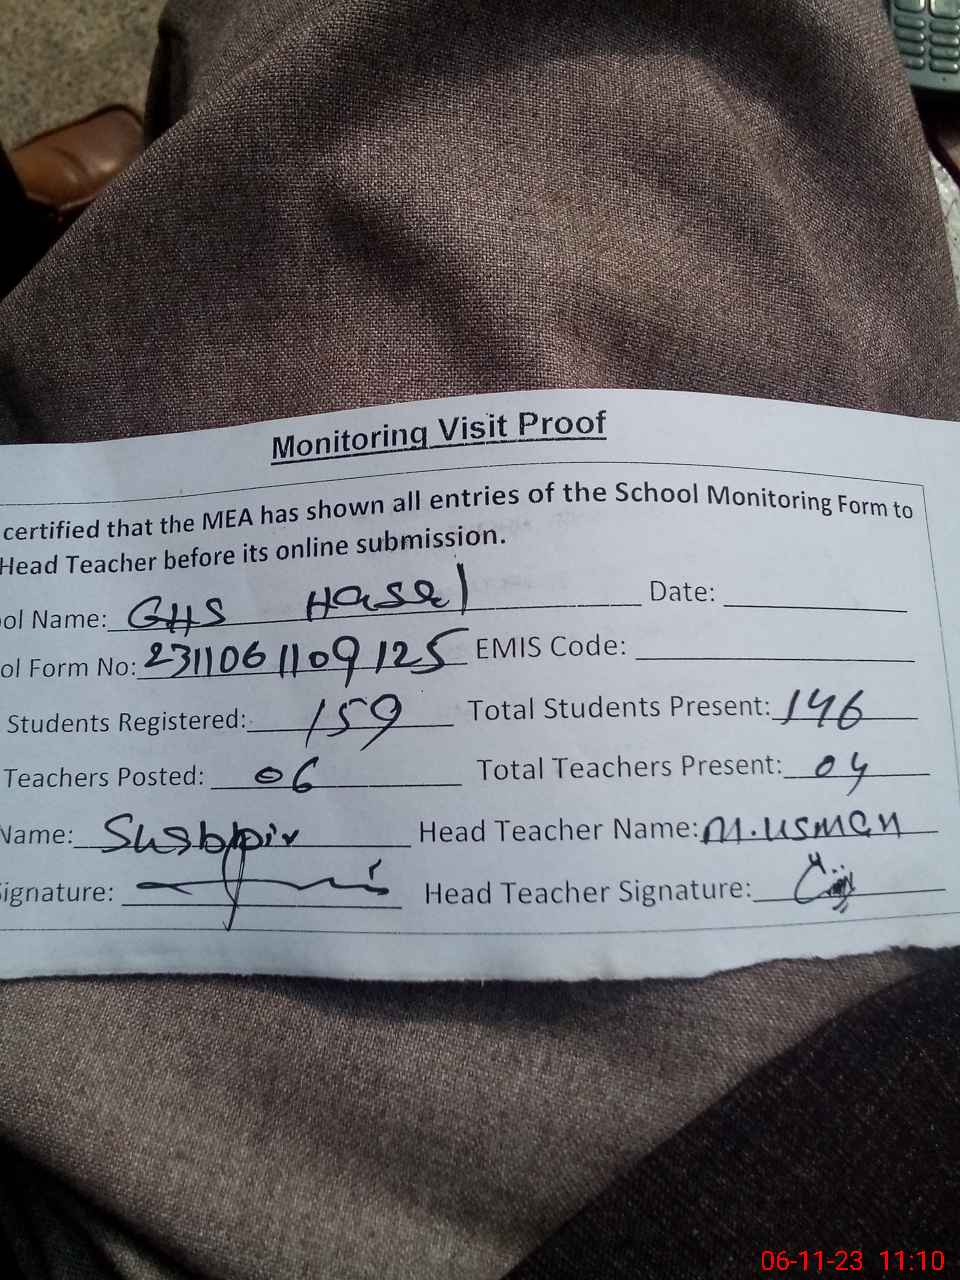 Monitoring Visit Proof
certified that the MEA has shown all entries of the School Monitoring Form to
Head Teacher before its online submission.
ol Name: GHS Hassal Date:
ol Form No: 231106 1109125 EMIS Code:
Students Registered: 159 Total Students Present: 146
Teachers Posted: 06 Total Teachers Present: 04
Name: Shabbir Head Teacher Name: M.USMAN
ignature: Head Teacher Signature:
06-11-23 11:10